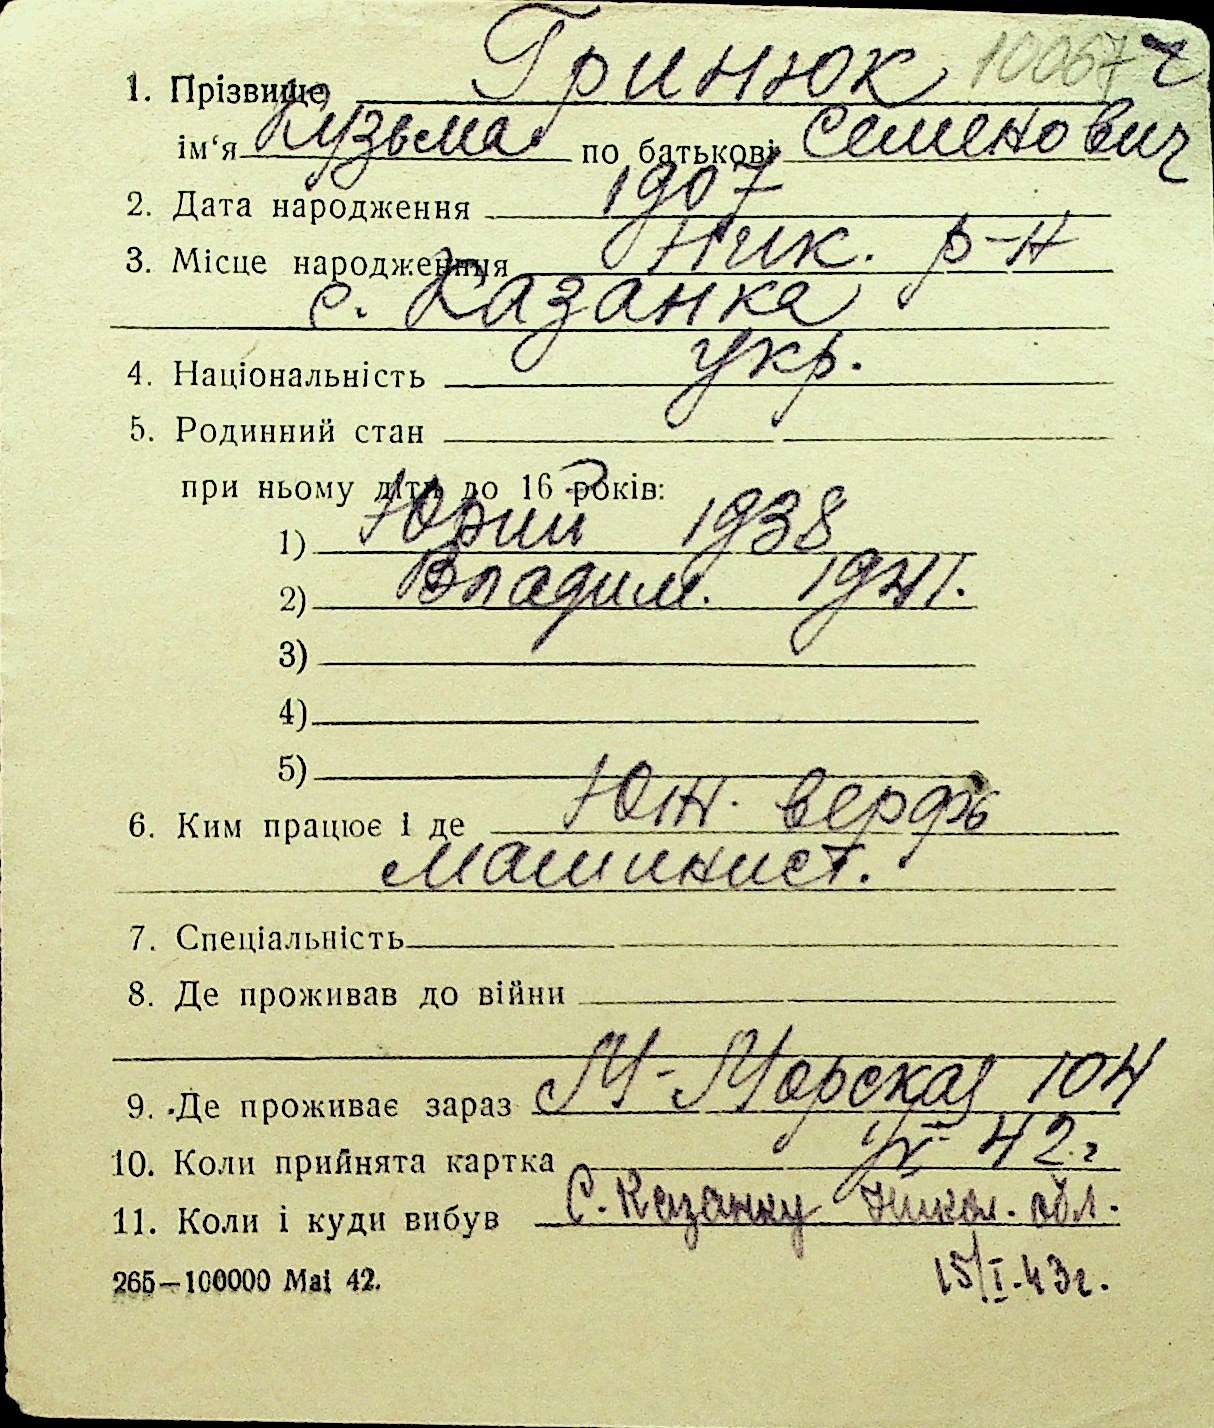 1. Прізвище Гринюк 10067 ч
ім‘я Кузьма по батькові Семенович
2. Дата народження 1907
3. Місце народження Ник. р-н
с. Казанка
4. Національність укр.
5. Родинний стан
при ньому діти до 16 років: 2
1) Юрий 1938
2) Владим. 1941.
3)
4)
5)
6. Ким працює і де Юж. верфь
машинист.
7. Спеціальність
8. Де проживав до війни
9. Де проживає зараз М-Морская 104
10. Коли прийнята картка 42 г
11. Коли і куди вибув С. Казанку Никол. обл.
265—100000 Mai 42. 15/I.43г.